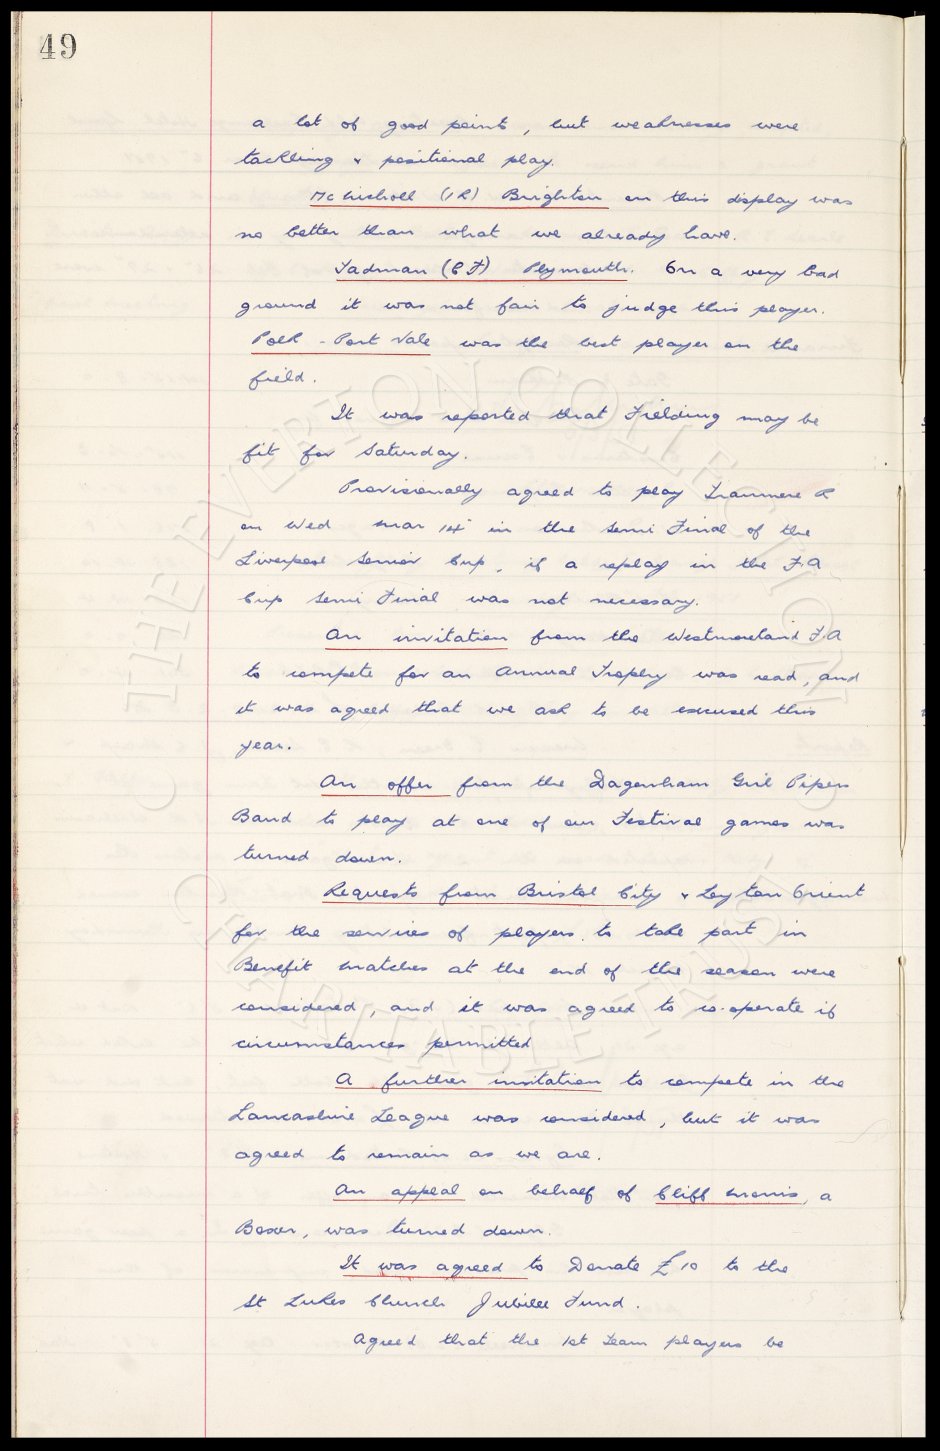 49
a lot of good points, but weaknesses were
tackling & positional play.
McNicholl (IR) Brighton on this display was
no better than what we already have.
Tadman (CF) Plymouth. On a very bad
ground it was not fair to judge this player.
Polk - Port Vale was the best player on the
field.
It was reported that Fielding may be
fit for Saturday.
Provisionally agreed to play Tranmere R
on Wed Mar 14th in the Semi Final of the
Liverpool Senior Cup, if a replay in the F.A
Cup Semi Final was not necessary.
An invitation from the Westmoreland F.A
to compete for an Annual Trophy was read, and
it was agreed that we ask to be excused this
year.
An offer from the Dagenham Girl Pipers
Band to play at one of our Festival games was
turned down.
Requests from Bristol City & Leyton Orient
for the services of players to take part in
Benefit Matches at the end of the season were
considered, and it was agreed to co-operate if
circumstances permitted
A further invitation to compete in the
Lancashire League was considered, but it was
agreed to remain as we are.
An appeal on behalf of Cliff Morris, a
Boxer, was turned down.
It was agreed to Donate £10 to the
St Lukes Church Jubilee Fund.
Agreed that the 1st Team players be
THE EVERTON COLLECTION
CHARITABLE TRUST